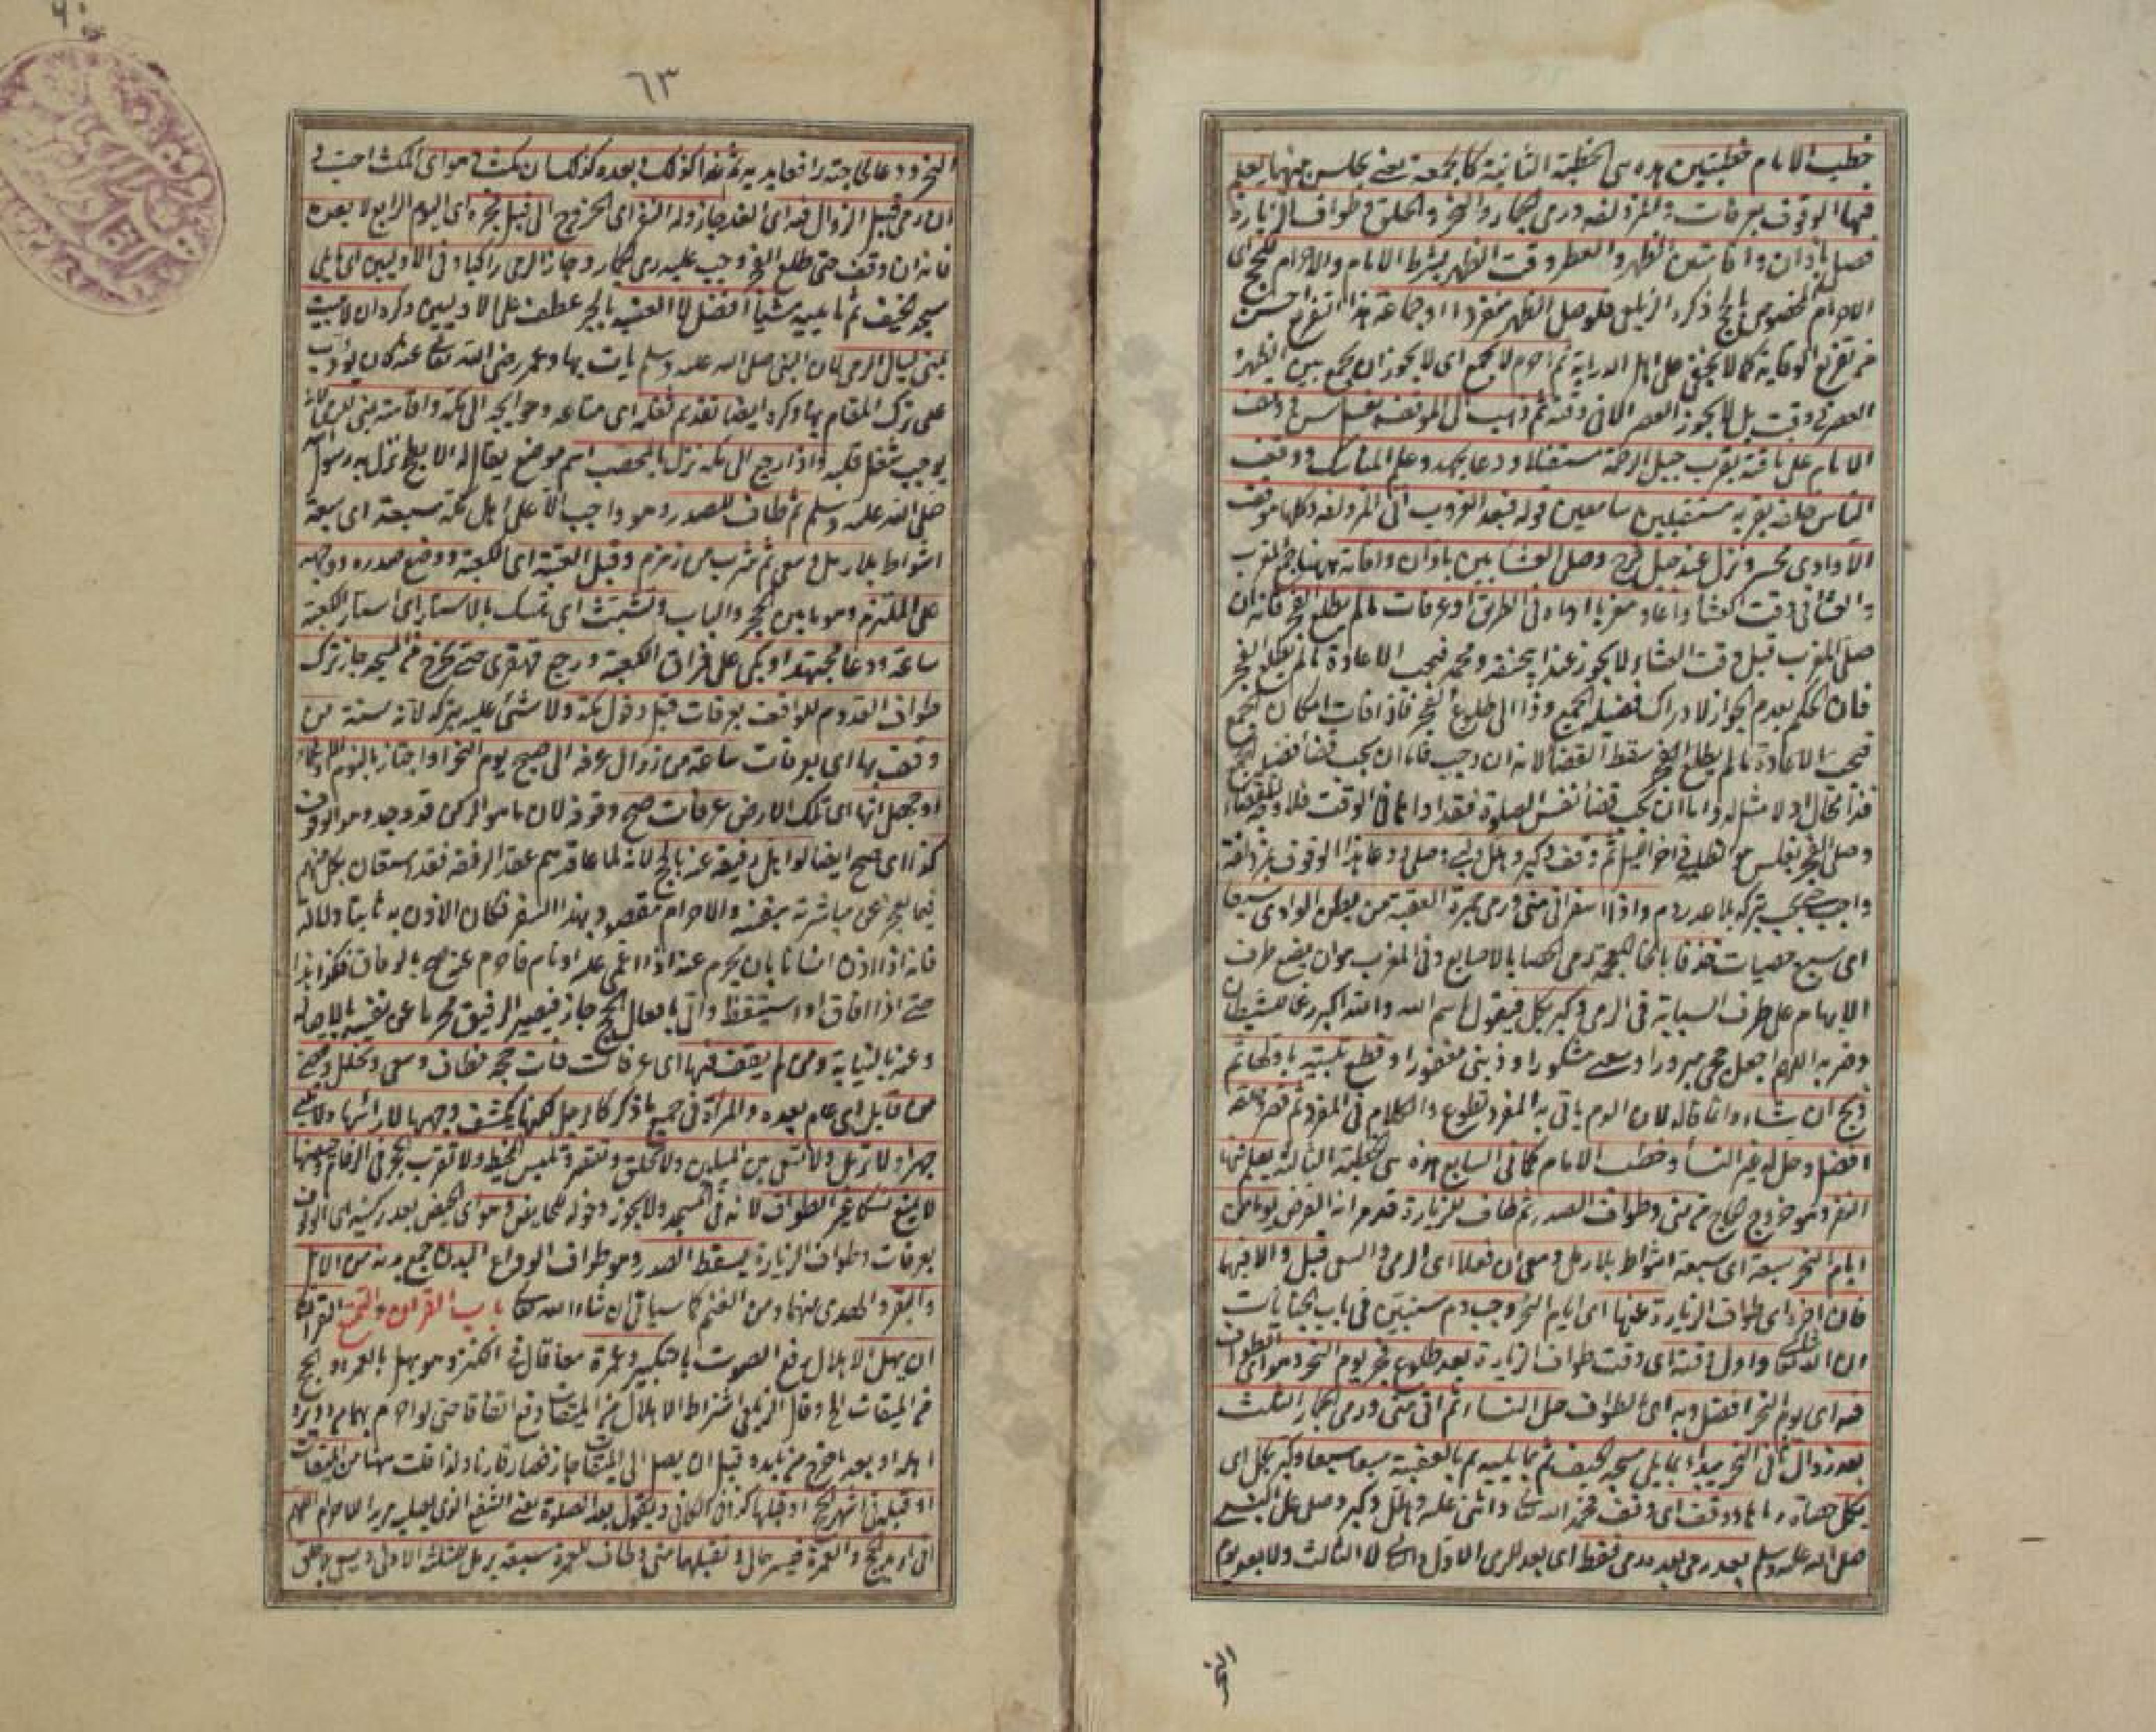 خطب الامام خطبتين هذه هى الخطبة الثانية كالجمعة يعنى يجلس بينهما يعلم
فيها الوقوف بعرفات والمزدلفة ورمى الجمار والنحر والحلق وطواف الزيارة
فصلى باذان واقامتين الظهر والعصر وقت الظهر بشرط الامام والاحرام للحج اى
الاحرام المخصوص بالحج ذكره الزيلعى فلو صلى الظهر منفردا او جماعة هذا التفريع احسن
من تفريع الوقاية كما لا يخفى على اهل الدراية ثم احرم لا يجمع اى لا يجوز ان يجمع بين الظهر و
العصر فى وقت بل لا يجوز العصر الا فى وقته ثم ذهب الى الموقف بغسل سن ووقف
الامام على ناقته بقرب جبل الرحمة مستقبلا ودعا بجهد وعلم المناسك ووقف
الناس خلفه بقربه مستقبلين سامعين قوله فبعد الغروب اتى المزدلفة وكلها موقف
الا وادى محسر ونزل عند جبل قزح وصلى العشاءين باذان واقامة ههنا جمع المغرب
والعشاء فى وقت العشاء واعاد مغربا اداه فى الطريق او عرفات ما لم يطلع الفجر فانه ان
صلى المغرب قبل وقت العشاء لا يجوز عند ابى حنيفة ومحمد فيجب الاعادة ما لم يطلع الفجر
فان الحكم بعدم الجواز لادراك فضيلة الجمع وذا الى طلوع الفجر فاذا فات امكان الجمع
فيجب الاعادة ما لم يطلع الفجر سقط القضاء لانه ان وجب فاما ان يجب قضاء فضيلة الجمع
فذا محال اذ لا مثل له واما ان يجب قضاء نفس الصلوة فقد اداها فى الوقت فلا وجه لقضائها
وصلى الفجر بغلس هو ظلمة فى اخر الليل ثم وقف وكبر وهلل ولبى وصلى ودعا هذا الوقوف بمزدلفة
واجب يجب بتركه بلا عذر دم واذا اسفر اتى منى ورمى جمرة العقبة من بطن الوادى سبعا
اى سبع حصيات خذفا بالخاء المعجمة رمى الحصا بالاصابع وفى المغرب هو ان يضع طرف
الابهام على طرف السبابة فى الرمى وكبر بكل فيقول بسم الله والله اكبر رغما للشيطان
وحزبه اللهم اجعل حجى مبرورا وسعيى مشكورا وذنبى مغفورا وقطع تلبيته باولها ثم
ذبح ان شاء وانما قاله لان الدم ياتى به المفرد تطوع والكلام فى المفرد ثم قصر وحلقه
افضل وحل له غير النساء وخطب الامام كما فى السابع هذه هى الخطبة الثالثة يعلم فيها
النفر وهو خروج الحاج من منى وطواف الصدر ثم طاف للزيارة قد مر انه الفرض يوما من
ايام النحر سبعة اى سبعة اشواط بلا رمل وسعى ان فعلا اى الرمل والسعى قبل والا فبهما
فان اخره اى طواف الزيارة عنها اى ايام النحر وجب دم سنبين فى باب الجنايات
ان شاء الله تعالى واول وقته اى وقت طواف الزيارة بعد طلوع فجر يوم النحر وهو اى الطواف
فيه اى يوم النحر افضل وبه اى الطواف حل النساء ثم اتى منى ورمى الجمار الثلث
بعد زوال ثانى النحر يبدا بما يلى مسجد الخيف ثم بما يليه ثم بالعقبة سبعا سبعا وكبر بكل اى
بكل حصاة رماها ووقف اى وقف فحمد الله تعالى واثنى عليه وهلل وكبر وصلى على النبى
صلى الله عليه وسلم بعد رمى بعده رمى فقط اى بعد الرمى الاول والثانى لا الثالث ولا بعد يوم
النحر
٦٣
النحر ودعا لحاجته رافعا يديه ثم غدا كذلك وبعده كذلك ان مكث وهو اى المكث احب و
ان رمى قبل الزوال فيه اى الغد جاز وله النفر اى الخروج الى قبل فجره اى اليوم الرابع لا بعده
فانه ان وقف حتى طلع الفجر وجب عليه رمى الجمار وجاز الرمى راكبا وفى الاوليين اى ما يلى
مسجد الخيف ثم ما يليه مشيا افضل لا العقبة بالجر عطف على الاوليين وكره ان لا يبيت
بمنى ليالى الرمى لان النبى صلى الله عليه وسلم بات بها وعمر رضى الله تعالى عنه كان يؤدب
على ترك المقام بها وكره ايضا تقديم ثقله اى متاعه وحوايجه الى مكة واقامته بمنى للرمى لانه
يوجب شغل قلبه واذا رجع الى مكة نزل بالمحصب اسم موضع يقال له الابطح نزل به رسول الله
صلى الله عليه وسلم ثم طاف للصدر وهو واجب الا على اهل مكة سبعة اى سبعة
اشواط بلا رمل وسعى ثم شرب من زمزم وقبل العتبة اى الكعبة ووضع صدره ووجهه
على الملتزم وهو ما بين الحجر والباب وتشبث اى تمسك بالاستار اى استار الكعبة
ساعة ودعا مجتهدا ويبكى على فراق الكعبة ورجع قهقرى حتى يخرج من المسجد جاز ترك
طواف القدوم للواقف بعرفات قبل دخول مكة ولا شئ عليه بتركه لانه سنة من
وقف بها اى بعرفات ساعة من زوال عرفة الى صبح يوم النحر او اجتاز بالنوم والاغماء
او جهل انها اى تلك الارض عرفات صح وقوفه لان ما هو الركن قد وجد وهو الوقوف
كذا اى صح ايضا لو اهل رفيقه عنه بالحج لانه لما عاقدهم عقد الرفقة فقد استعان بكل منهم
فيما يعجز عن مباشرته بنفسه والاحرام مقصود بهذا السفر فكان الاذن به ثابتا دلالة
فانه اذا اذن انسانا بان يحرم عنه اذا اغمى عليه او نام فاحرم عنه صح بالوفاق فكذا هذا
حتى اذا افاق او استيقظ واتى بافعال الحج جاز فيصير الرفيق محرما عن نفسه بالاصالة
وعنه بالنيابة ومن لم يقف فيها اى عرفات فات حجه فطاف وسعى وتحلل وقضى
من قابل اى عام بعده والمرأة فى جميع ما ذكر كالرجل لكنها تكشف وجهها لا راسها ولا تلبى
جهرا ولا ترمل ولا تسعى بين الميلين ولا تحلق وتقصر وتلبس المخيط ولا تقرب الحجر فى الزحام وحيضها
لا يمنع نسكا غير الطواف لانه فى المسجد ولا يجوز دخوله للحايض وهو اى الحيض بعد ركنيه اى الوقوف
بعرفات وطواف الزيارة يسقط الصدر وهو طواف الوداع البدن جمع بدنة من الابل
والبقر والهدى منهما ومن الغنم كما سياتى ان شاء الله تعالى باب القران والتمتع القران
ان يهل الاهلال رفع الصوت بالتكبير وعمرة معا قال فى الكنز وهو يهل بالعمرة والحج
من الميقات الخ وقال الزيلعى اشتراط الاهلال من الميقات وقع اتفاقا حتى لو احرم بهما من دويرة
اهله او بعد ما خرج من بلده قبل ان يصل الى الميقات جاز فصار قارنا ولذا قلت ههنا من الميقات
او قبله فى اشهر الحج او قبلها كذا فى الكافى ويقول بعد الصلوة يعنى الشفع الذى يصليه مريدا للاحرام اللهم
انى اريد الحج والعمرة فيسرهما لى وتقبلهما منى وطاف للعمرة سبعة يرمل للثلثة الاول ويسعى بلا حلق